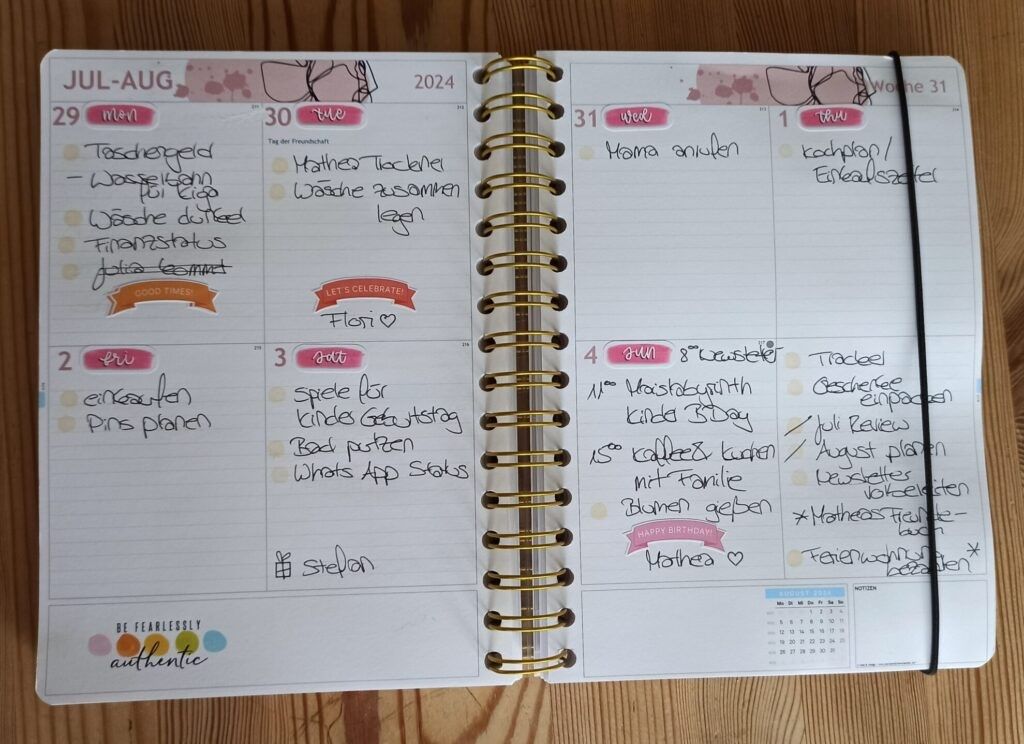 JUL-AUG
2024
29 mon
Taschengeld
- Wasserbahn
für Kiga
Wäsche dunkel
Finanzstatus
Julia kommt
GOOD TIMES!
30 tue
Tag der Freundschaft
Mathea Trockner
Wäsche zusammen
legen
LET'S CELEBRATE!
Flori ♡
2 fri
einkaufen
Pins planen
3 sat
Spiele für
Kinder Geburtstag
Bad putzen
Whats App Status
Stefan
BE FEARLESSLY
authentic
Woche 31
31 wed
Mama anrufen
1 thu
Kochplan/
Einkaufszettel
4 sun
8⁰⁰ Newsletter
11⁰⁰ Maislabyrinth
Kinder BDay
15⁰⁰ Kaffee & Kuchen
mit Familie
Blumen gießen
HAPPY BIRTHDAY!
Mathea ♡
Geschenke
einpacken
/ Juli Review
/ August planen
Newsletter
vorbereiten
* Matheas Freunde-
buch
Ferienwohnung *
bezahlen
AUGUST 2024
Mo Di Mi Do Fr Sa So
1 2 3 4
5 6 7 8 9 10 11
12 13 14 15 16 17 18
19 20 21 22 23 24 25
26 27 28 29 30 31
NOTIZEN